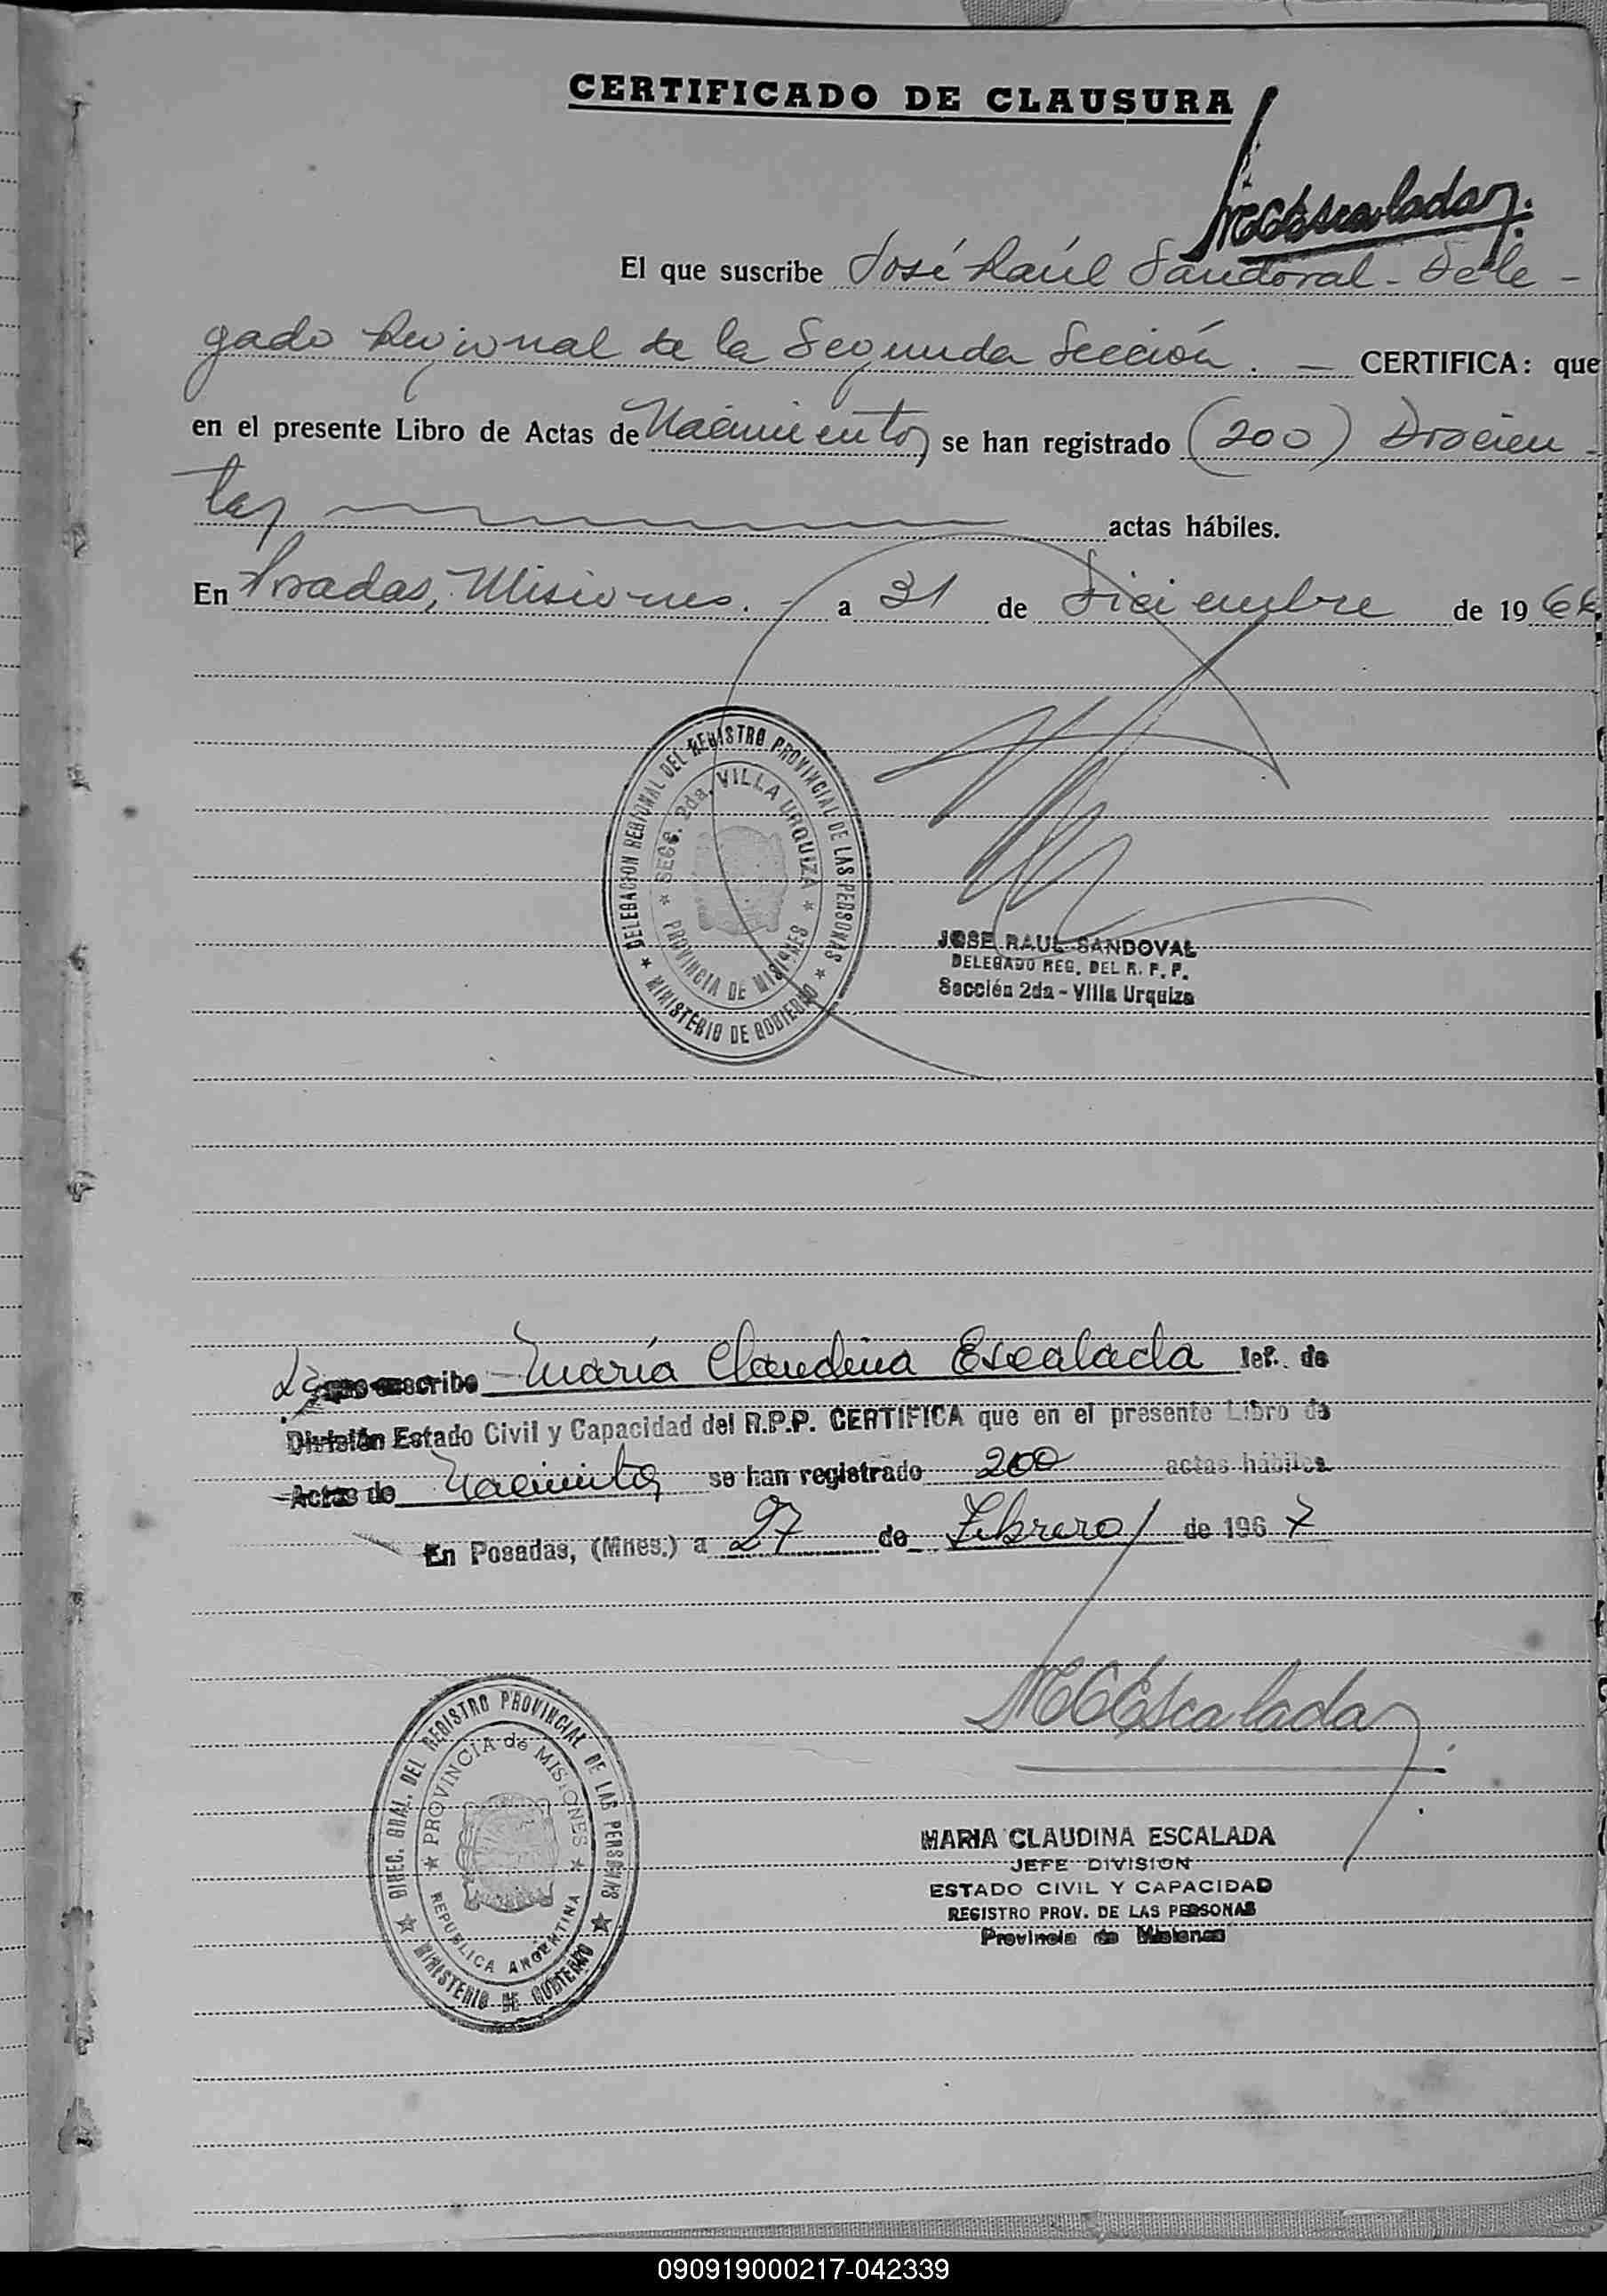 CERTIFICADO DE CLAUSURA
MCEscalada
El que suscribe José Raúl Sandoval - Dele -
gado Regional de la Segunda Sección. — CERTIFICA: que
en el presente Libro de Actas de Nacimientos se han registrado (200) Doscien -
tas actas hábiles.
En Posadas, Misiones. - a 31 de Diciembre de 1966
DELEGACION REGIONAL DEL REGISTRO PROVINCIAL DE LAS PERSONAS
SECC. 2da. VILLA URQUIZA
PROVINCIA DE MISIONES
MINISTERIO DE GOBIERNO
JOSE RAUL SANDOVAL
DELEGADO REG. DEL R. P. P.
Sección 2da - Villa Urquiza
La que suscribe María Claudina Escalada Jef. de
División Estado Civil y Capacidad del R.P.P. CERTIFICA que en el presente Libro de
Actas de Nacimientos se han registrado 200 actas hábiles
En Posadas, (Mnes.) a 27 de Febrero de 1967
MCEscalada
DIREC. GRAL. DEL REGISTRO PROVINCIAL DE LAS PERSONAS
PROVINCIA de MISIONES
REPUBLICA ARGENTINA
MINISTERIO DE GOBIERNO
MARIA CLAUDINA ESCALADA
JEFE DIVISION
ESTADO CIVIL Y CAPACIDAD
REGISTRO PROV. DE LAS PERSONAS
Provincia de Misiones
090919000217-042339